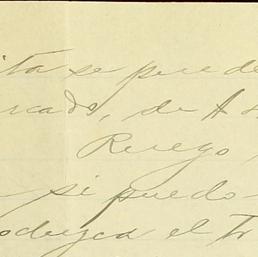 ita se puede
rcado, de A
Ruego
si puedo
oduzca el Tr